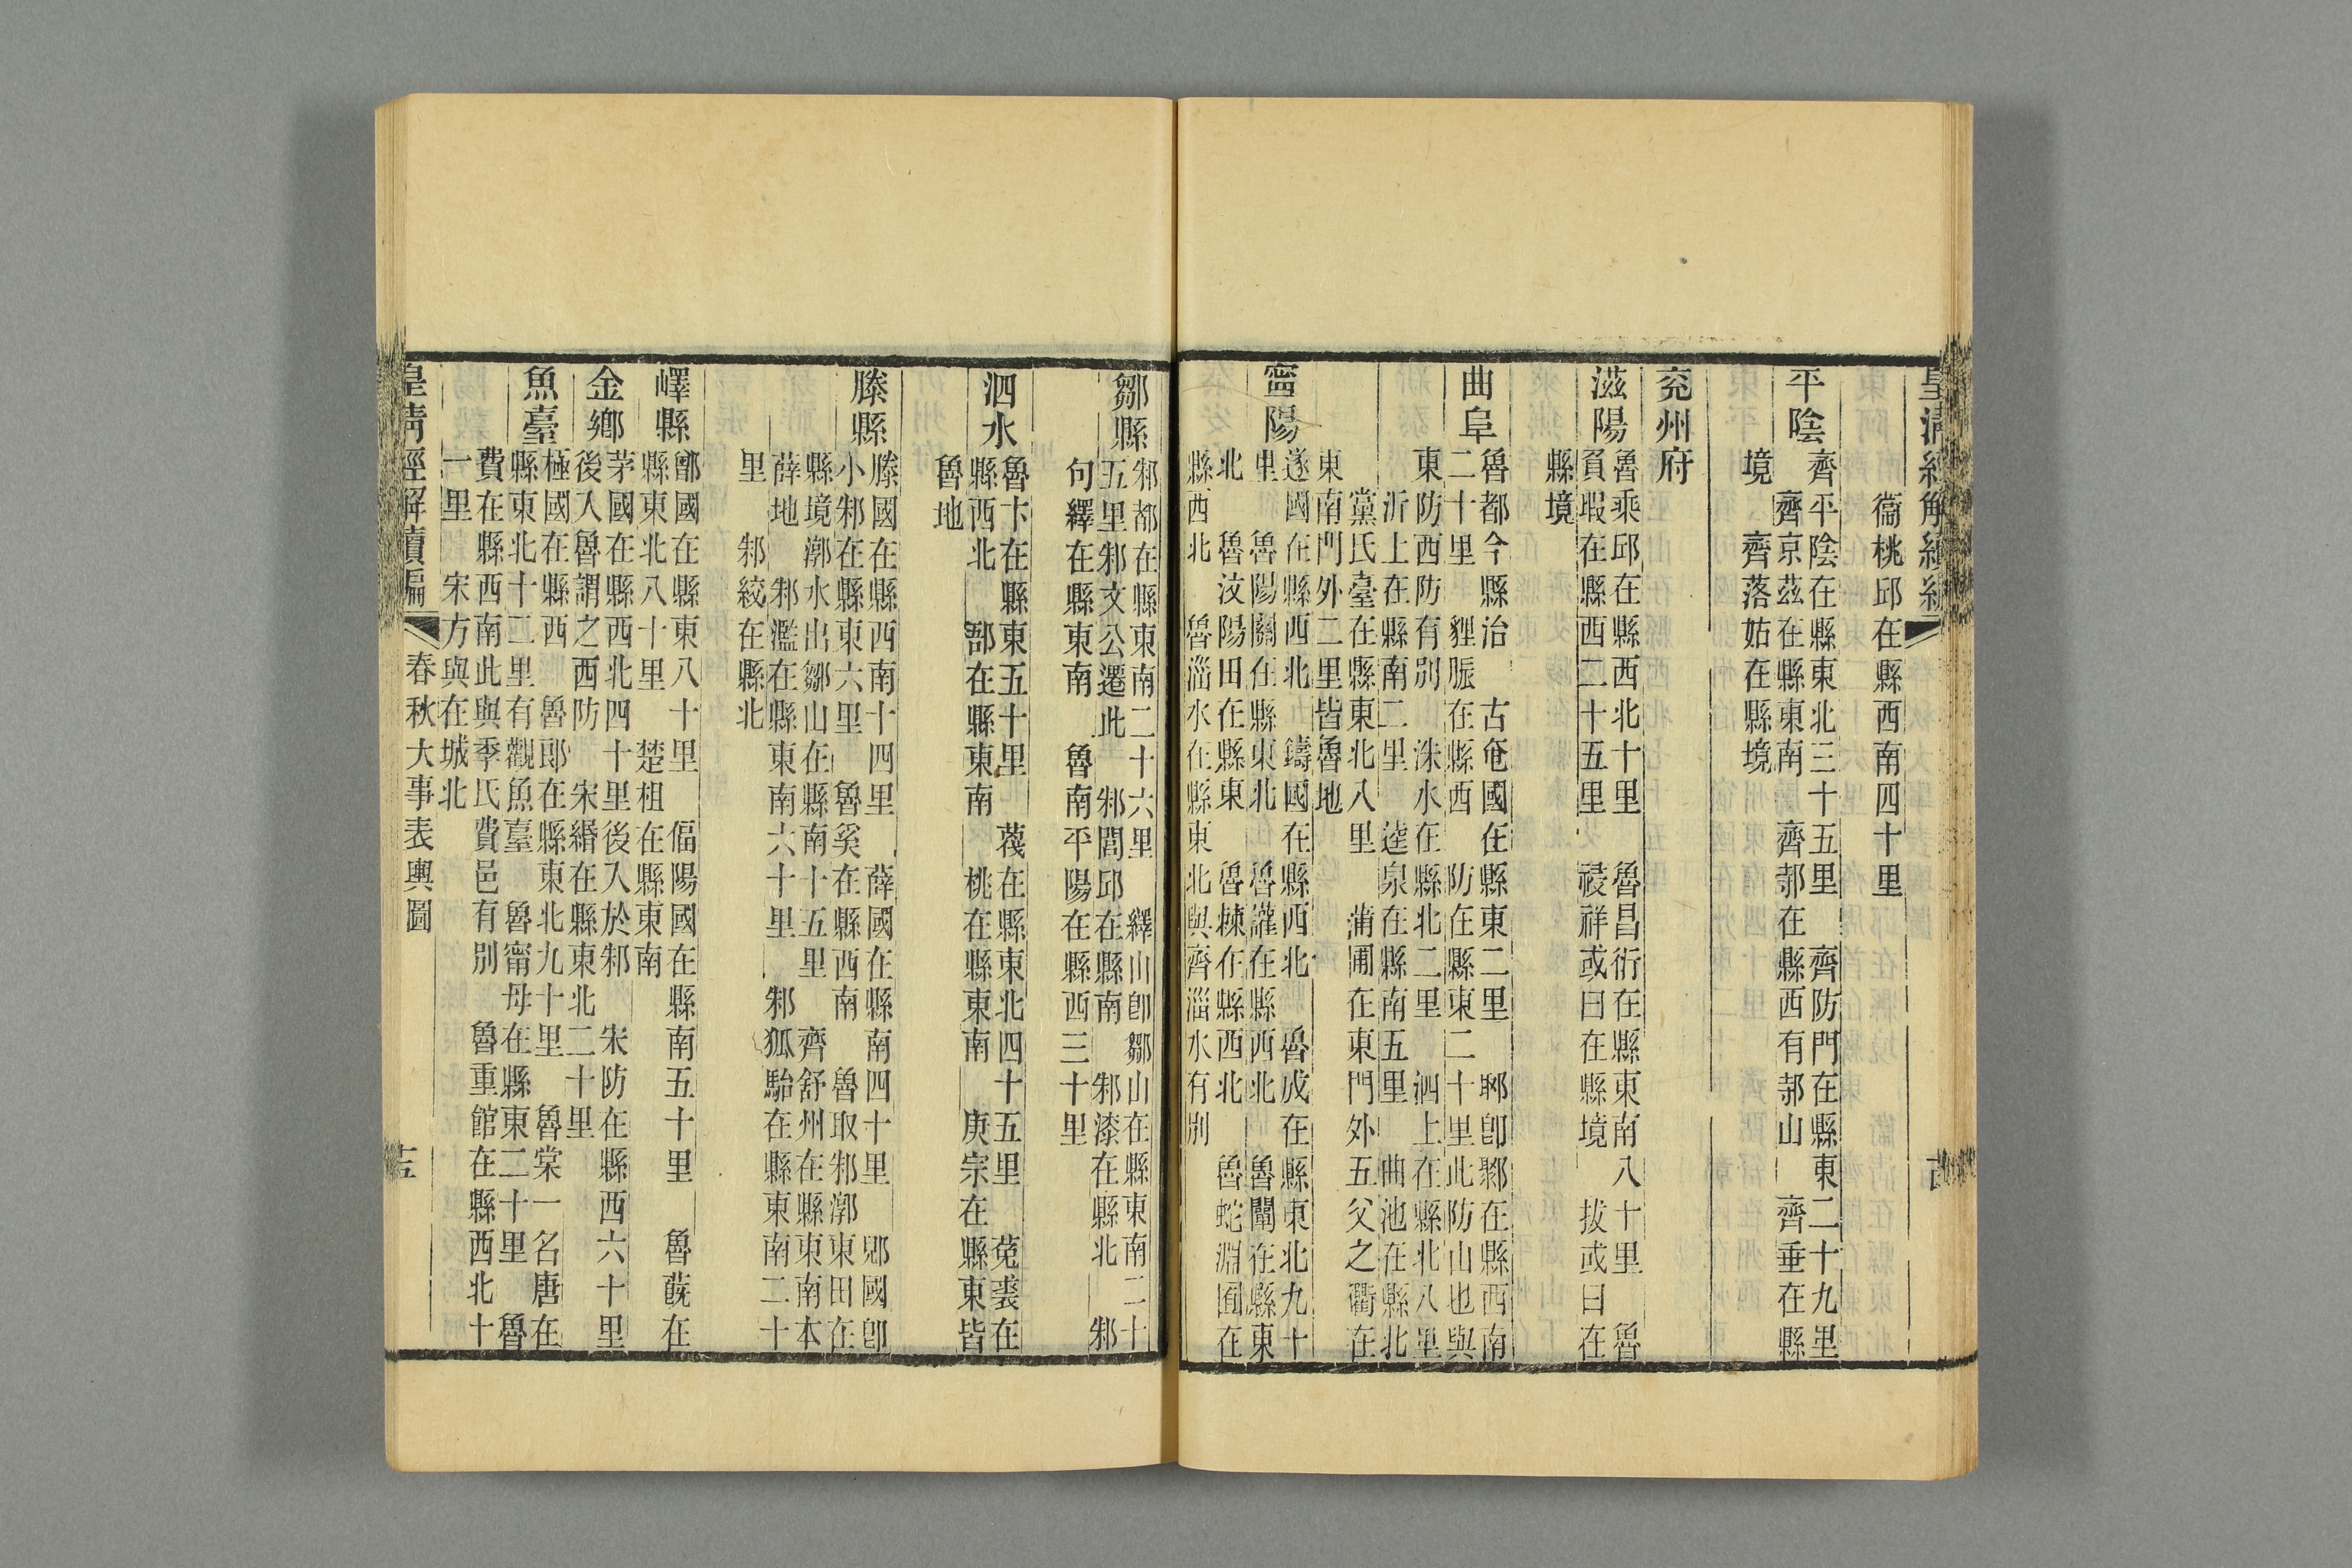 衞桃邱在縣西南四十里
平陰
齊平陰在縣東北三十五里　齊防門在縣東二十九里
齊京茲在縣東南　齊邿在縣西有邿山　齊垂在縣
境　齊落姑在縣境
兖州府
滋陽
魯乘邱在縣西北十里　魯昌衍在縣東南八十里　魯
負瑕在縣西二十五里　祲祥或曰在縣境　拔或曰在
縣境
曲阜
魯都今縣治　古奄國在縣東二里　郰卽鄹在縣西南
二十里　貍脤在縣西　防在縣東二十里此防山也與
東防西防有别　洙水在縣北二里　泗上在縣北八里
沂上在縣南二里　逵泉在縣南五里　曲池在縣北
黨氏臺在縣東北八里　蒲圃在東門外　五父之衢在
東南門外二里皆魯地
寧陽
遂國在縣西北　鑄國在縣西北　魯成在縣東北九十
里　魯陽關在縣東北　魯讙在縣西北　魯闡在縣東
北　魯汶陽田在縣東　魯棘在縣西北　魯蛇淵囿在
縣西北　魯淄水在縣東北與齊淄水有别
鄒縣
邾都在縣東南二十六里　繹山卽鄒山在縣東南二十
五里邾文公遷此　邾閭邱在縣南　邾漆在縣北　邾
句繹在縣東南　魯南平陽在縣西三十里
泗水
魯卞在縣東五十里　蔑在縣東北四十五里　菟裘在
縣西北　郚在縣東南　桃在縣東南　庚宗在縣東皆
魯地
滕縣
滕國在縣西南十四里　薛國在縣南四十里　郳國卽
小邾在縣東六里　魯奚在縣西南　魯取邾漷東田在
縣境漷水出鄒山在縣南十五里　齊舒州在縣東南本
薛地　邾濫在縣東南六十里　邾狐駘在縣東南二十
里　邾絞在縣北
嶧縣
鄫國在縣東八十里　偪陽國在縣南五十里　魯䔉在
縣東北八十里　楚柤在縣東南
金鄉
茅國在縣西北四十里後入於邾　宋防在縣西六十里
後入魯謂之西防　宋緡在縣東北二十里
魚臺
極國在縣西　魯郎在縣東北九十里　魯棠一名唐在
縣東北十二里有觀魚臺　魯甯母在縣東二十里　魯
費在縣西南此與季氏費邑有别　魯重館在縣西北十
一里　宋方與在城北
皇清經解續編　春秋大事表輿圖　十五